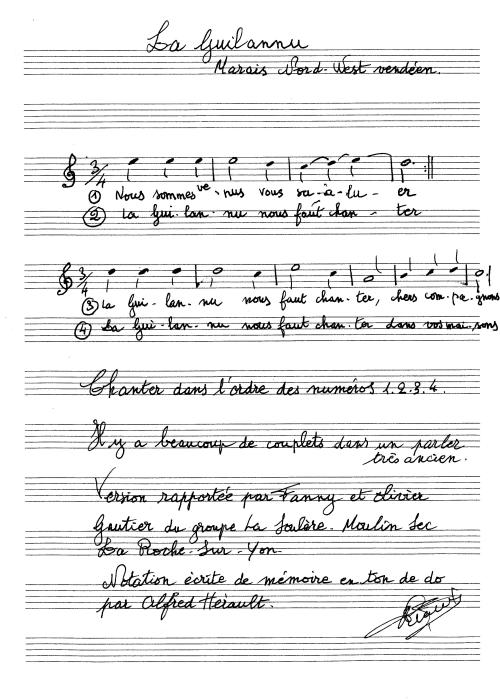 La Guilannu
Marais Nord-West vendéen.
3/4
① Nous sommes ve-nus vous sa-à-lu-er
② La Gui-lan-nu nous faut chan-ter
3/4
③ La Gui-lan-nu nous faut chan-ter, chers com-pa-gnons
④ La Gui-lan-nu nous faut chan-ter dans vos mai-sons
Chanter dans l'ordre des numéros 1.2.3.4.
Il y a beaucoup de couplets dans un parler
très ancien.
Version rapportée par Fanny et Olivier
Gautier du groupe La Soulère. Moulin Sec
La Roche-Sur-Yon
Notation écrite de mémoire en ton de do
par Alfred Hérault.